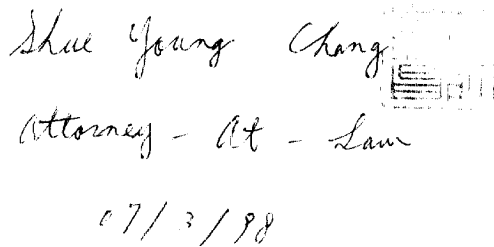 Shue Young Chang
Attorney - At - Law
07/3/98